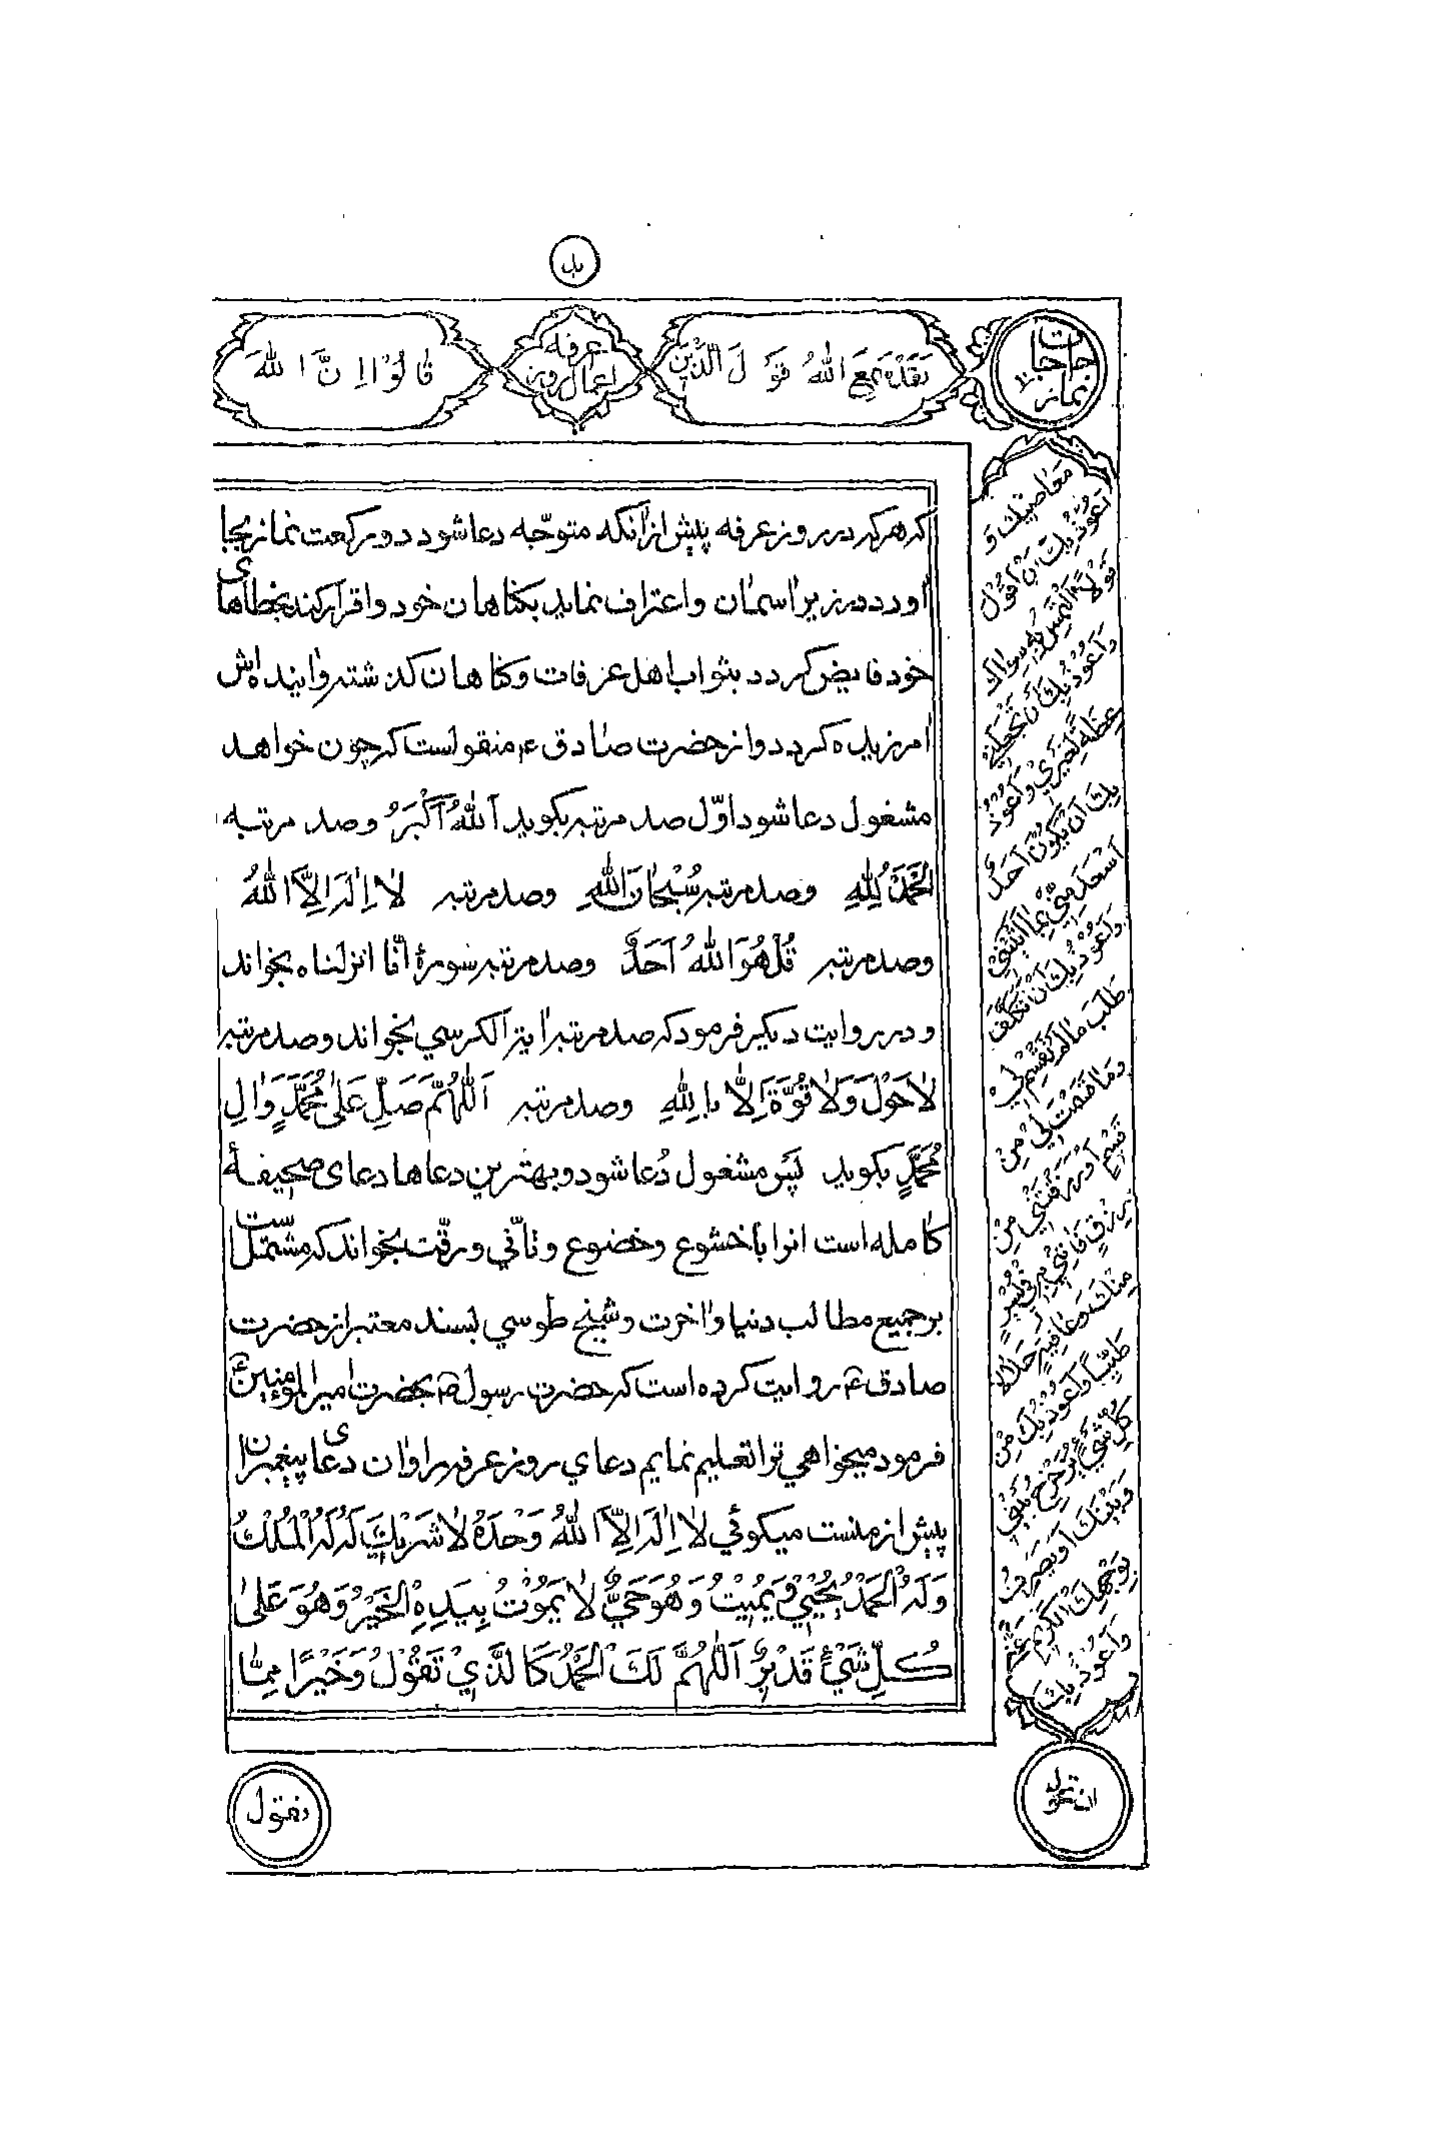 نماز حاجات
لَقَدْ سَمِعَ اللّٰهُ قَوْلَ الَّذِيْنَ
اعمال روز عرفه
قَالُوْا اِنَّ اللّٰهَ
که هرکه در روز عرفه پیش از آنکه متوجّه دعا شود دو رکعت نماز بجا
آورد در زیر آسمان و اعتراف نماید بکناهان خود و اقرار کند بخطاهای
خود فایض کردد بثواب اهل عرفات و کناهان کذشته و آینده اش
امرزیده کردد و از حضرت صادق ع منقولست که چون خواهد
مشغول دعا شود اوّل صد مرتبه بکوید اَللّٰهُ اَكْبَرُ و صد مرتبه
اَلْحَمْدُ لِلّٰهِ و صد مرتبه سُبْحَانَ اللّٰهِ و صد مرتبه لَا اِلٰهَ اِلَّا اللّٰهُ
و صد مرتبه قُلْ هُوَ اللّٰهُ اَحَدٌ و صد مرتبه سورۀ انّا انزلناه بخواند
و در روایت دیکر فرمود که صد مرتبه آیة الکرسي بخواند و صد مرتبه
لَا حَوْلَ وَلَا قُوَّةَ اِلَّا بِاللّٰهِ و صد مرتبه اَللّٰهُمَّ صَلِّ عَلٰى مُحَمَّدٍ وَاٰلِ
مُحَمَّدٍ بکوید پس مشغول دُعا شود و بهترین دعاها دعای صحیفۀ
کامله است انرا با خشوع و خضوع و تأنّي و رقّت بخواند که مشتملست
بر جمیع مطالب دنیا و آخرت و شیخ طوسي بسند معتبر از حضرت
صادق ع روایت کرده است که حضرت رسول ص بحضرت امیر المؤمنین ع
فرمود میخواهي ترا تعلیم نمایم دعاي روز عرفه را و آن دعای پیغمبران
پیش از منست میکوئي لَا اِلٰهَ اِلَّا اللّٰهُ وَحْدَهُ لَا شَرِيْكَ لَهُ لَهُ الْمُلْكُ
وَلَهُ الْحَمْدُ يُحْيِيْ وَيُمِيْتُ وَهُوَ حَيٌّ لَا يَمُوْتُ بِيَدِهِ الْخَيْرُ وَهُوَ عَلٰى
كُلِّ شَيْءٍ قَدِيْرٌ اَللّٰهُمَّ لَكَ الْحَمْدُ كَالَّذِيْ تَقُوْلُ وَخَيْرًا مِمَّا
نقول
مَعَاصِيْكَ وَ
اَعُوْذُ بِكَ اَنْ اَقُوْلَ
قَوْلًا اَلْتَمِسُ بِهِ سِوَاكَ
وَاَعُوْذُ بِكَ اَنْ تَجْعَلَنِيْ
عِظَةً لِغَيْرِيْ وَاَعُوْذُ
بِكَ اَنْ يَكُوْنَ اَحَدٌ
اَسْعَدَ مِنِّيْ بِمَا اٰتَيْتَنِيْ
وَاَعُوْذُ بِكَ اَنْ اَتَكَلَّفَ
طَلَبَ مَا لَمْ تَقْسِمْ لِيْ
وَمَا قَسَمْتَ لِيْ مِنْ
قِسْمٍ اَوْ رَزَقْتَنِيْ مِنْ
رِزْقٍ فَاْتِنِيْ بِهِ فِيْ يُسْرٍ
مِنْكَ وَعَافِيَةٍ حَلَالًا
طَيِّبًا وَاَعُوْذُ بِكَ مِنْ
كُلِّ شَيْءٍ يُزَحْزِحُ بَيْنِيْ
وَبَيْنَكَ اَوْ يَصْرِفُ
بِوَجْهِكَ الْكَرِيْمِ عَنِّيْ
وَاَعُوْذُ بِكَ
ان تحول